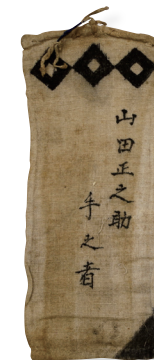 山田正之助
手之者